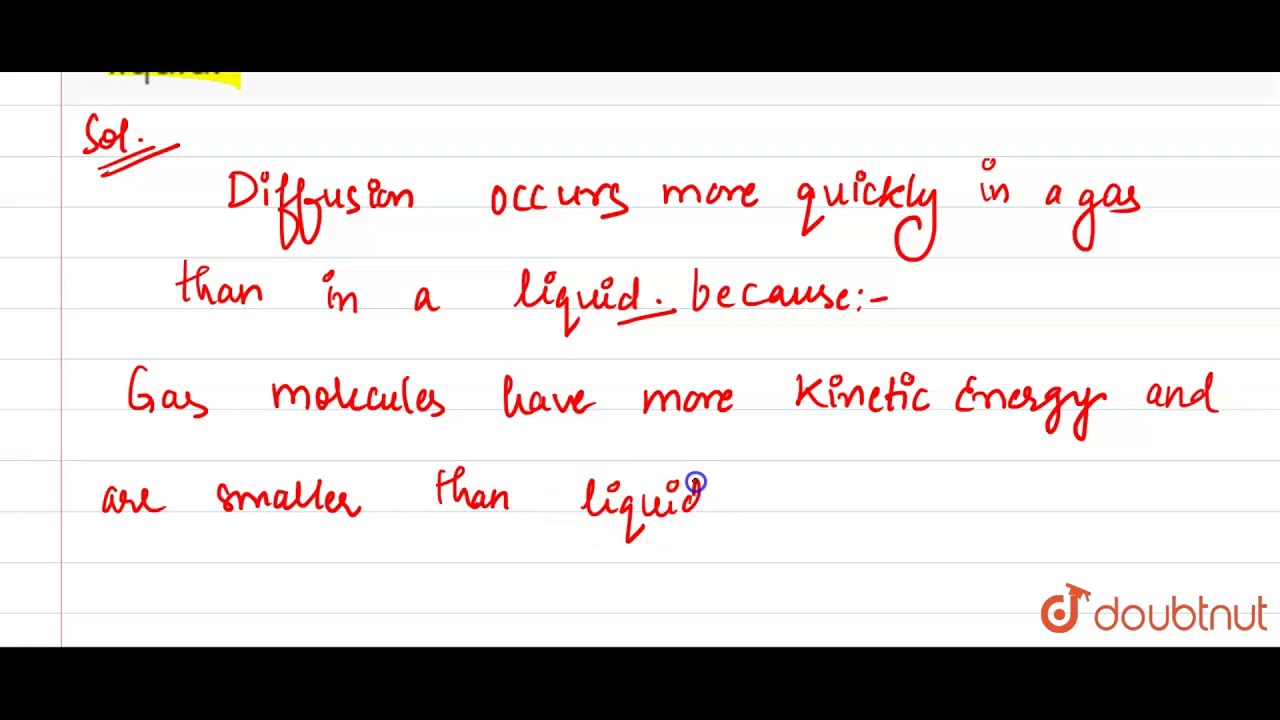 Sol.
Diffusion occurs more quickly in a gas
than in a liquid. because:-
Gas molecules have more Kinetic Energy and
are smaller than liquid
doubtnut